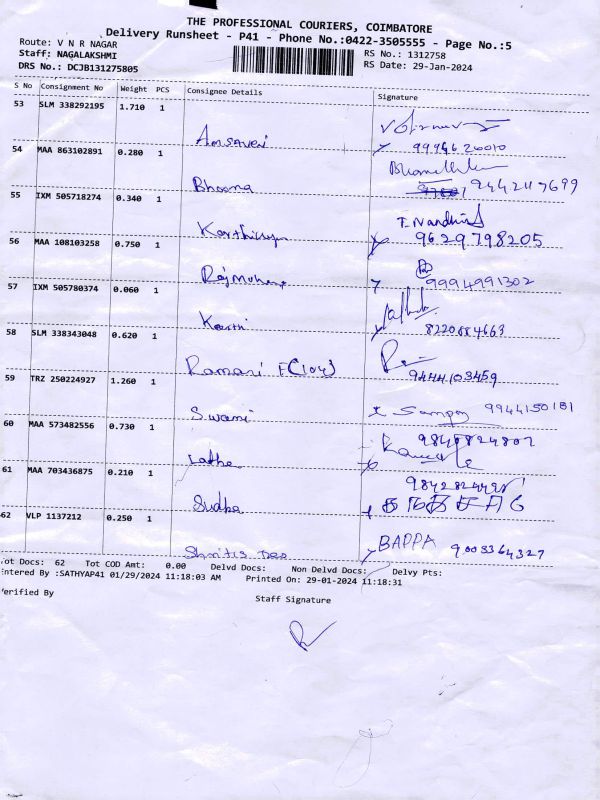 THE PROFESSIONAL COURIERS, COIMBATORE
Delivery Runsheet - P41 - Phone No.:0422-3505555 - Page No.:5
Route: V N R NAGAR
RS No.: 1312758
Staff: NAGALAKSHMI
RS Date: 29-Jan-2024
DRS No.: DCJB131275805
S No Consignment No Weight PCS Consignee Details Signature
53 SLM 338292195 1.710 1
Amsaveni
54 MAA 863102891 0.280 1
Bhooma 9442117699
55 IXM 505718274 0.340 1
9629798205
56 MAA 108103258 0.750 1
Rajmohan 9994991302
57 IXM 505780374 0.060 1
8220684663
58 SLM 338343048 0.620 1
Ramani 9444103459
59 TRZ 250224927 1.260 1
Swami 9944150181
60 MAA 573482556 0.730 1
Latha
61 MAA 703436875 0.210 1
Sudha
62 VLP 1137212 0.250 1
BAPPA 9003364327
Tot Docs: 62 Tot COD Amt: 0.00 Delvd Docs: Non Delvd Docs: Delvy Pts:
Entered By :SATHYAP41 01/29/2024 11:18:03 AM Printed On: 29-01-2024 11:18:31
Verified By
Staff Signature